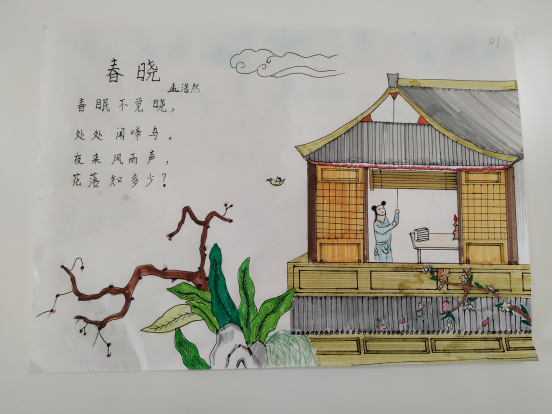 春晓
孟浩然
春眠不觉晓，
处处闻啼鸟。
夜来风雨声，
花落知多少？
01